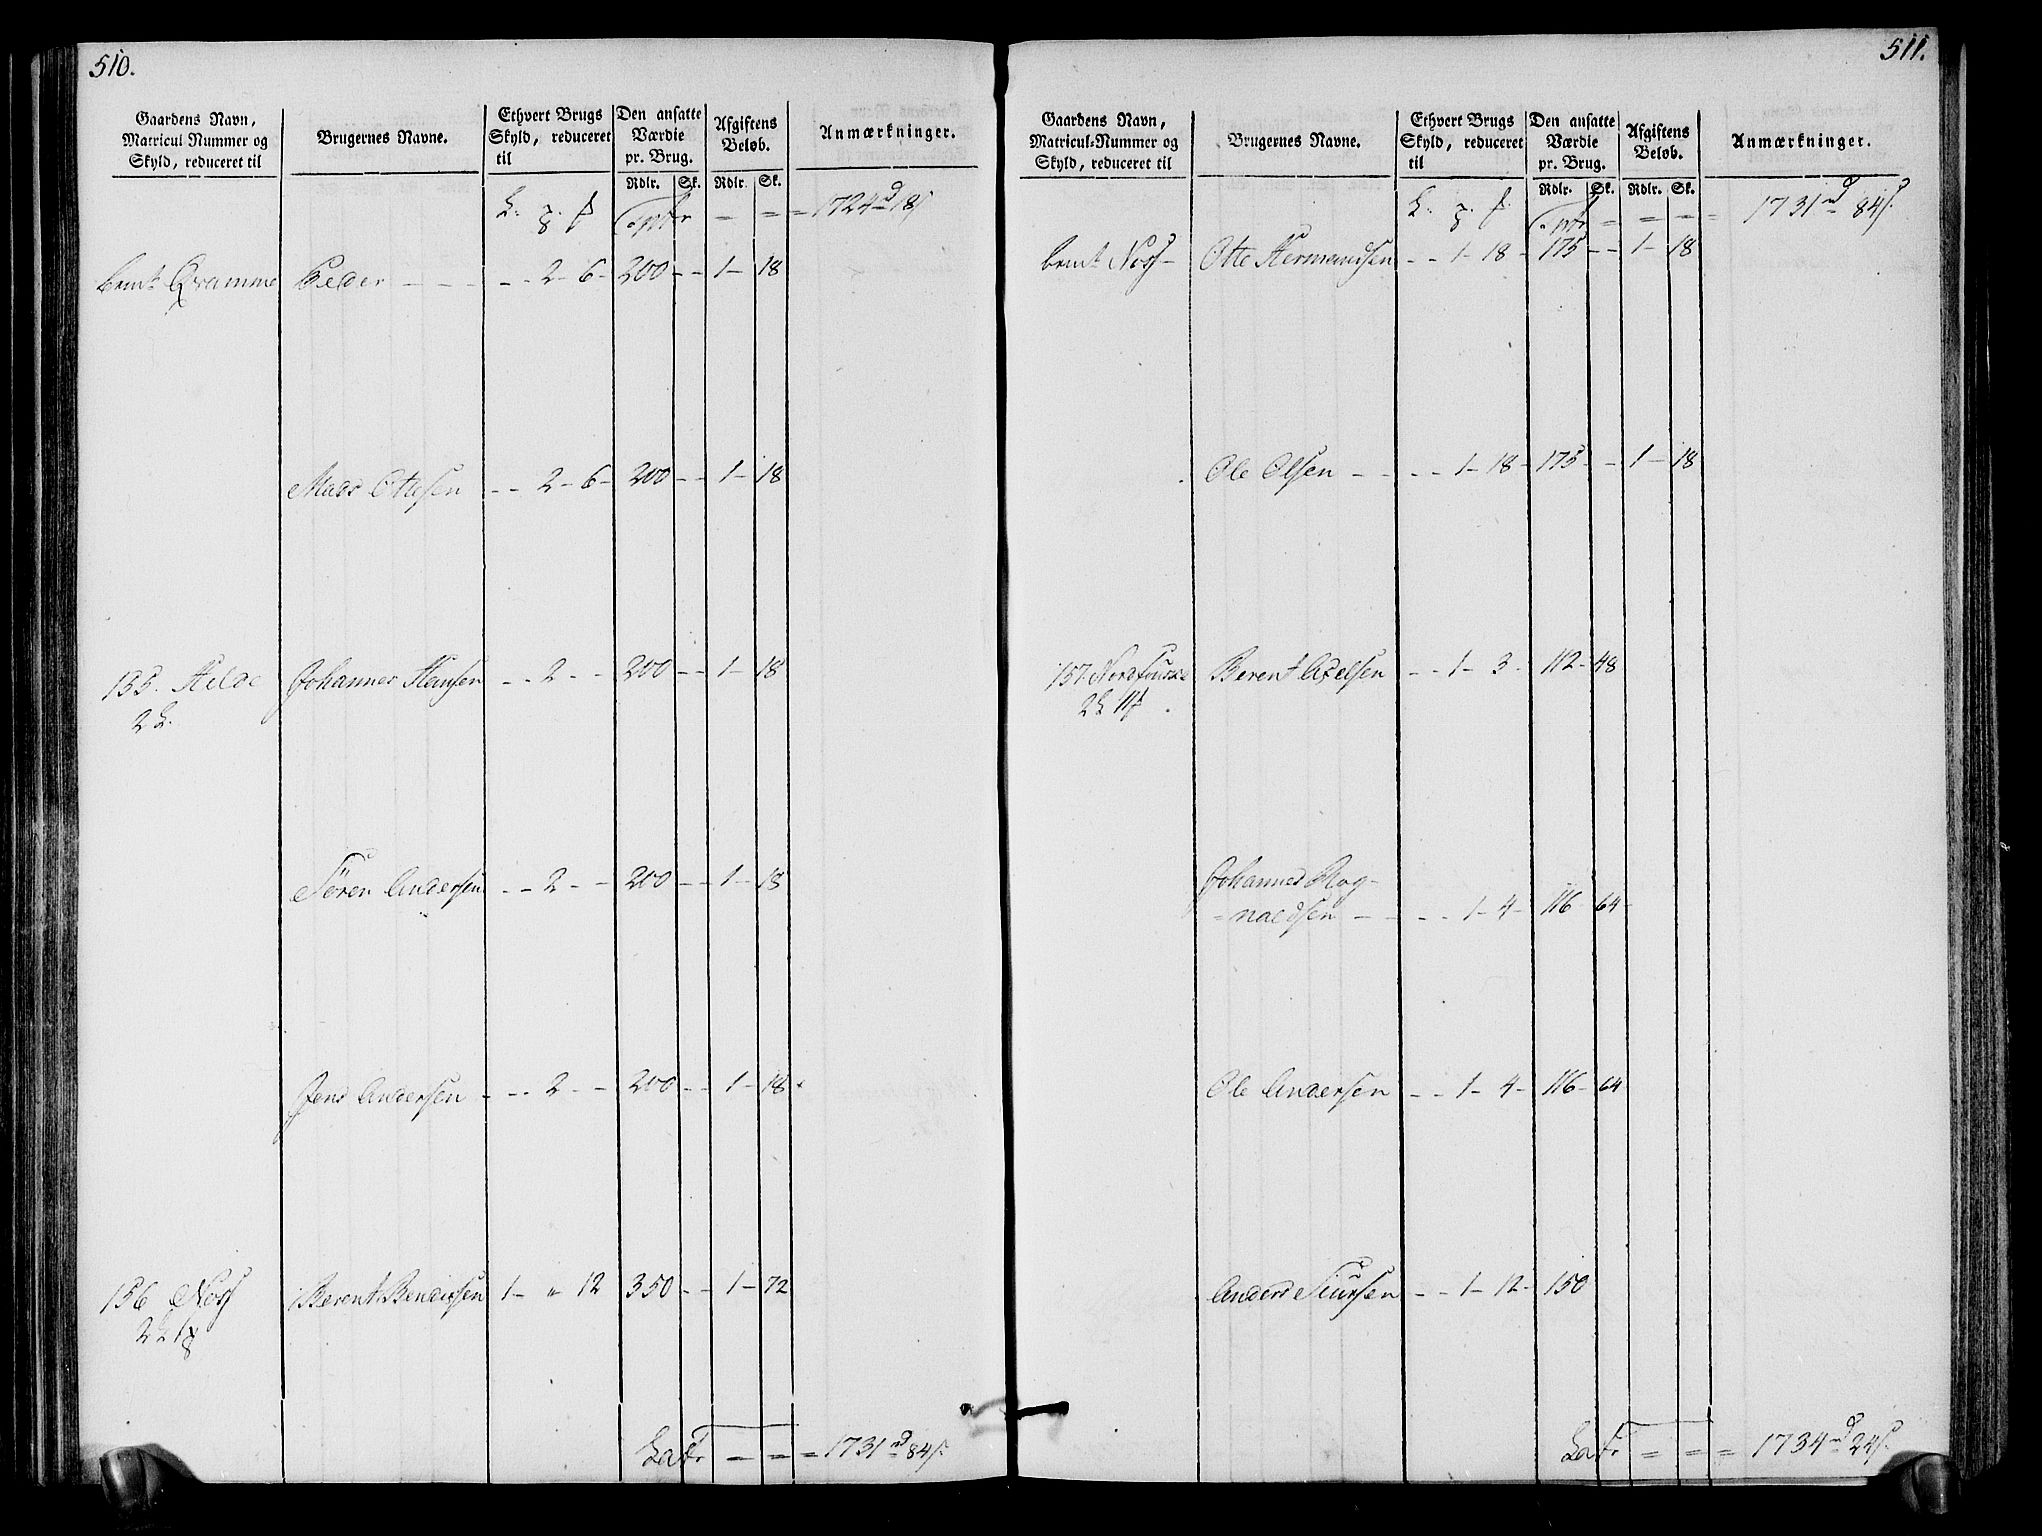 510.
Gaardens Navn, Matricul Nummer og Skyld, reduceret til
Brugernes Navne.
Ethvert Brugs Skyld, reduceret til
Den ansatte Værdie pr. Brug.
Afgiftens Beløb.
Anmærkninger.
Rdlr. Sk. Rdlr. Sk.
1724 18
Qvamme Peder - - - - - 2 - 6 - 200 - - 1 - 18
Mads Ottesen - - 2 - 6 - 200 - - 1 - 18
155. Hilde Johannes Hansen - - 2 - - 200 - - 1 - 18
2
Sören Andersen - - 2 - - 200 - - 1 - 18
Jens Andersen - - - 2 - - 200 - - 1 - 18
156 Noss Berent Bendixsen 1 - " 12 350 - - 1 - 72
Latr = = = 1731 84
511.
Gaardens Navn, Matricul-Nummer og Skyld, reduceret til
Brugernes Navne.
Ethvert Brugs Skyld, reduceret til
Den ansatte Værdie pr. Brug.
Afgiftens Beløb.
Anmærkninger.
Rdlr. Sk. Rdlr. Sk.
1731 84
Noss - Otte Hermandsen - - 1 - 18 - 175 - - 1 - 18
Ole Olsen - - - - 1 - 18 - 175 - - 1 - 18
157 Berent Axelsen - - 1 - 3 - 112 - 48
Johannes Rog-
=naldsen - - - - 1 - 4 - 116 64 -
Ole Andersen - - 1 - 4 - 116 - 64
Anders Siursen - - 1 - 12 - 150
Latr = = = 1734 24